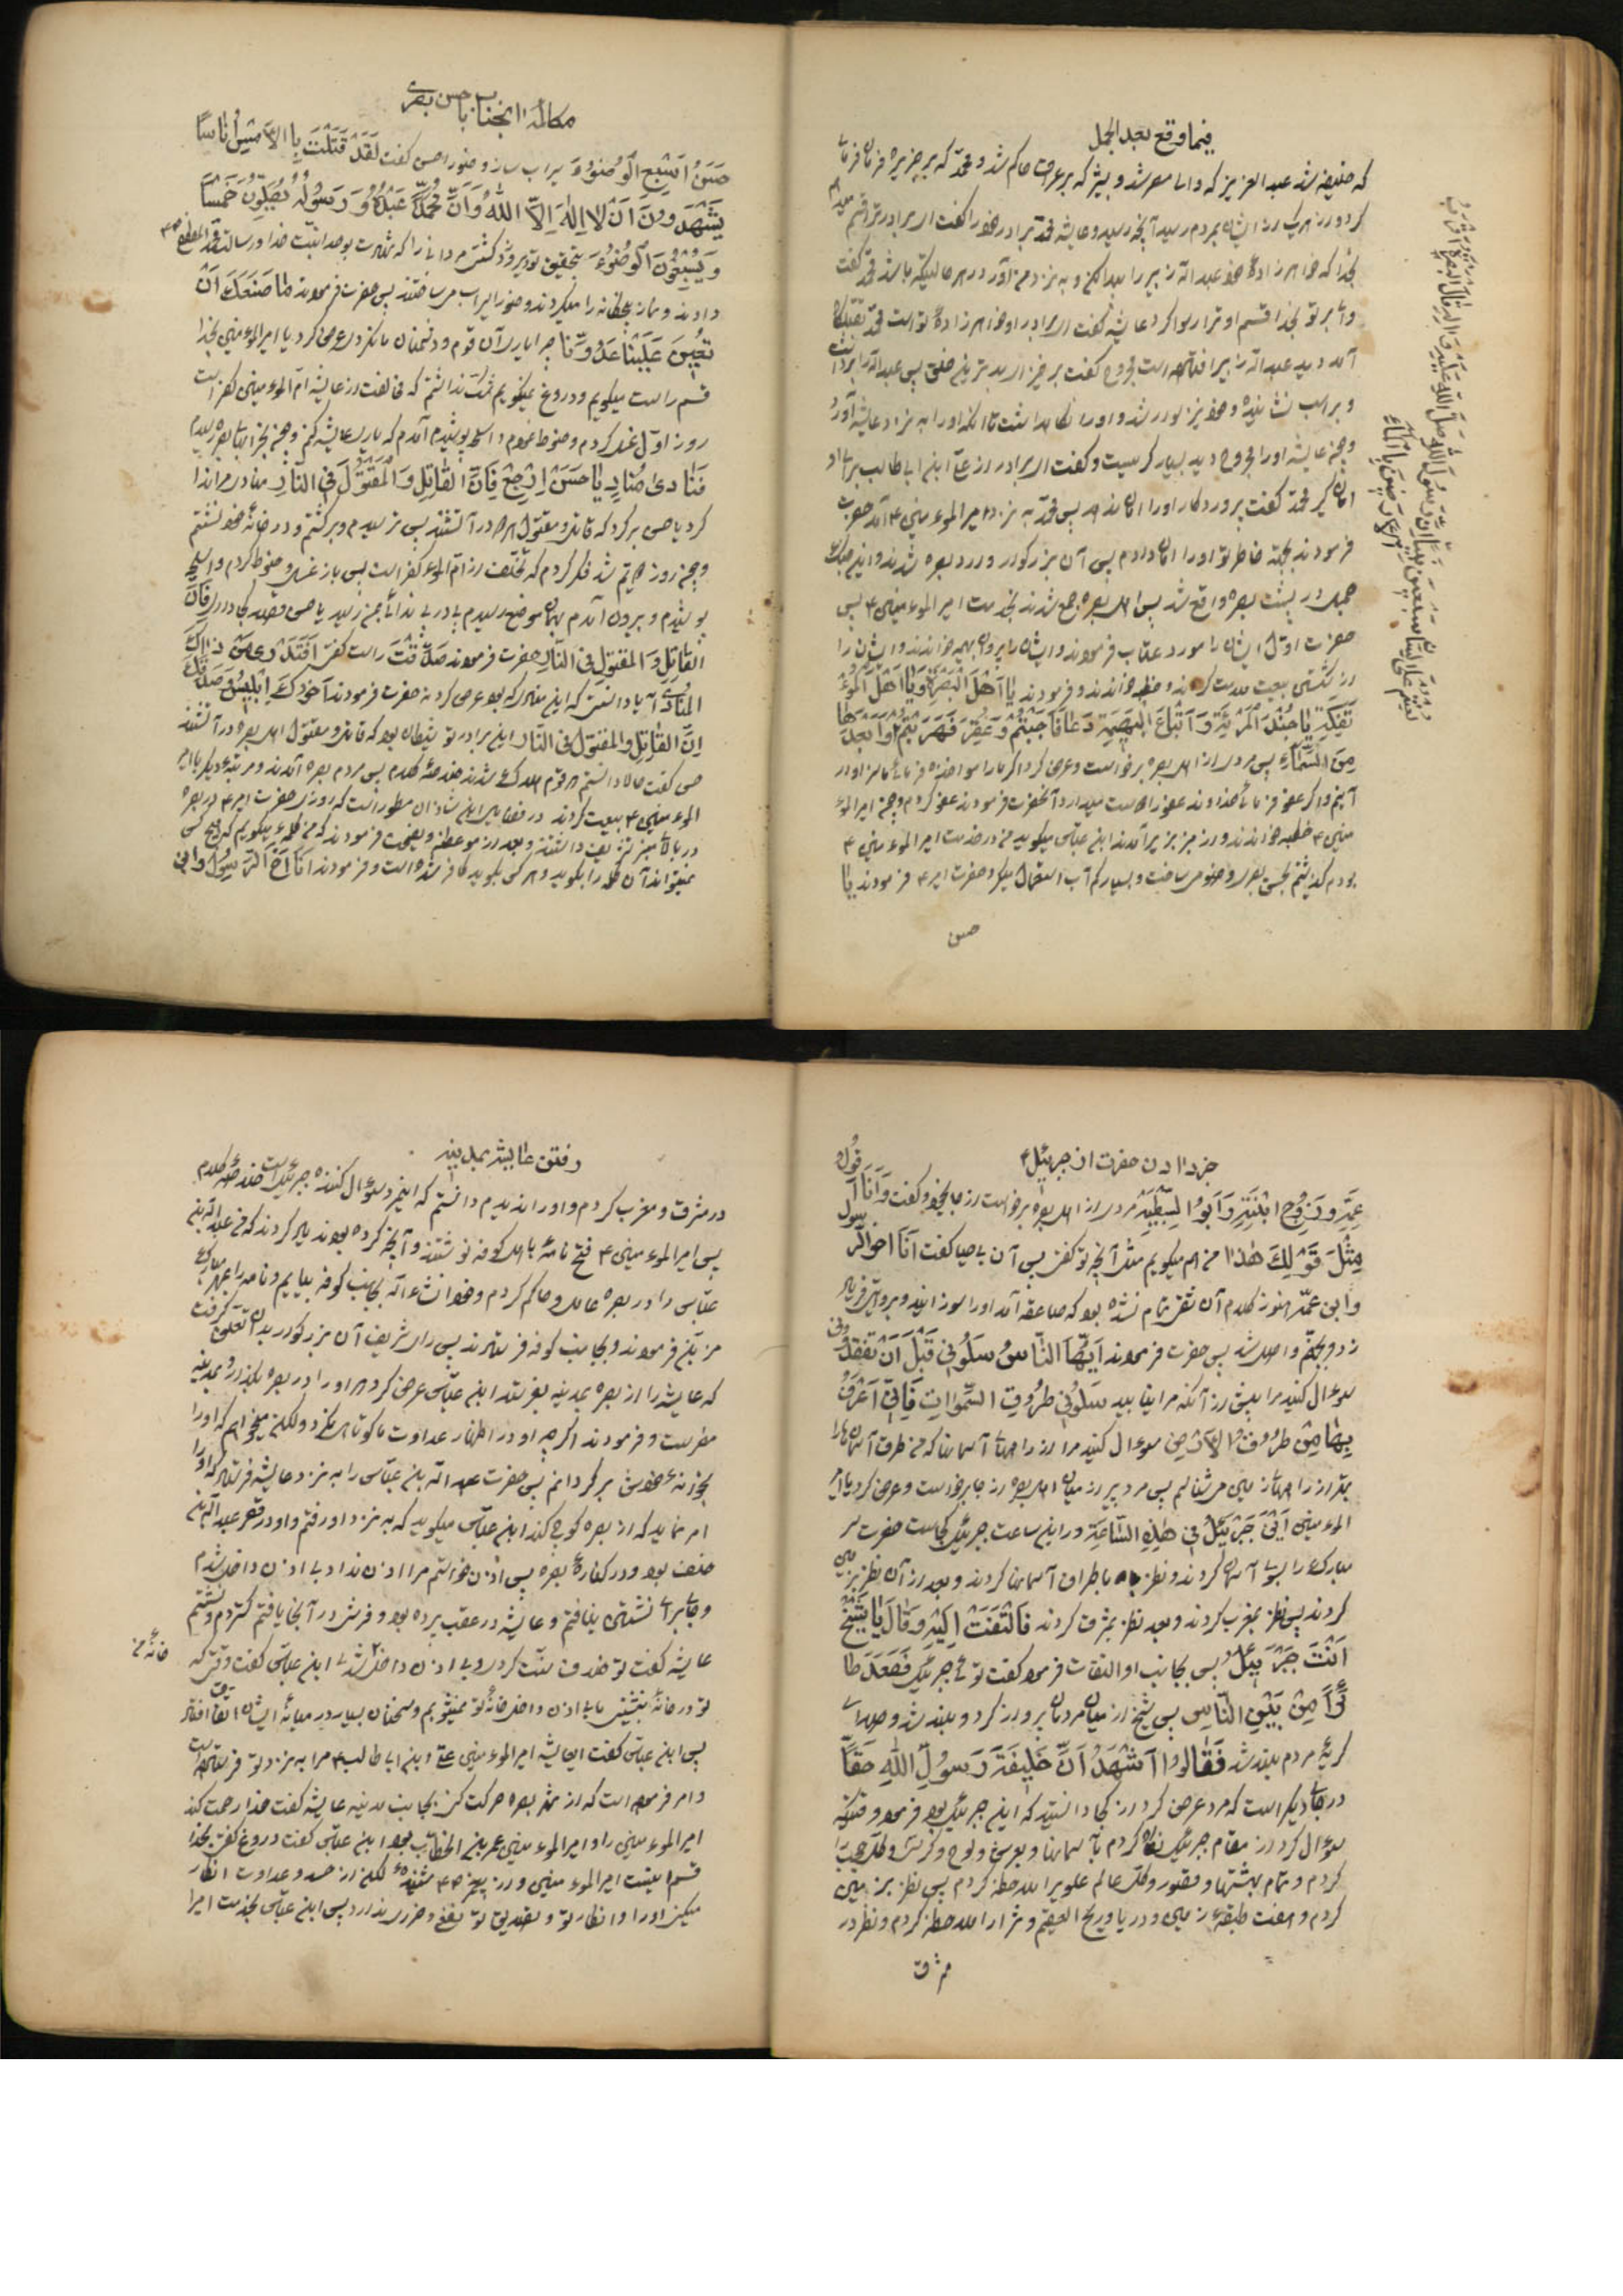 فیما وقع بعد الجمل
که خلیفه شد عبد العزیز که والی مصر شد و بشر که بر عراق حاکم شد و محمد که بر جزیره فرمان فرمائی
کرد و رز هریک رز ایشان بمردم رسید آنچه رسید و عایشه محمد برادر خود را گفت ای برادر ترا قسم میدهم
بخدا که خواهر زادهٔ خود عبد الله زبیر را پیدا کنی و به نزد من آور در هر حالیکه باشد محمد گفت
وای بر تو بخدا قسم او ترا رسوا کرد عایشه گفت ای برادر او خواهر زادهٔ تو است محمد بقتلگاه
آمد دید عبد الله زبیر افتاده است مجروح گفت برخیز ای بدترین خلق پس عبد الله را برداشت
و بر اسب نشانیده و خود نیز سوار شد و او را نگاه داشت تا آنکه او را به نزد عایشه آورد
و چون عایشه او را مجروح دید بسیار گریست و گفت ای برادر رز علی ابن ابی طالب برای او
امان گیر محمد گفت پروردگار او را امان ندهد پس محمد به نزد امیر المؤمنین ع آمد حضرت
فرمودند بجهة خاطر تو او را امان دادم پس آن بزرگوار وارد بصره شدند و این جنگ
جمل در پشت بصره واقع شد پس اهل بصره جمع شدند بخدمت امیر المؤمنین ع پس
حضرت اول ایشان را مورد عتاب فرمودند و ایشان را پیروان بهیمه خواندند و ایشان را
رز شکستن بیعت ملامت کردند و خطبه خواندند و فرمودند یا اَهْلَ الْبَصْرَةِ وَیا اَهْلَ الْمُؤْ
تَفِکَةِ یا جُنْدَ الْمَرْئَةِ وَ اَتْباعَ الْبَهیمَةِ دَعا فَاَجَبْتُمْ وَ عُقِرَ فَهَرَبْتُمْ وَ اَبْعَدُها
مِنَ السَّماءِ پس مردی رز اهل بصره برخواست و عرض کرد اگر ما را مواخذه فرمائی ما سزاوار
آنیم و اگر عفو فرمائی خداوند عفو را دوست میدارد آنحضرت فرمودند عفو کردم و چون امیر المؤ
منین ع خطبه خواندند و رز منبر بزیر آمدند ابن عباس میگوید من در خدمت امیر المؤمنین ع
بودم گذشتم بحسن بصری وضو میساخت و بسیار کم آب استعمال میکرد حضرت امیر ع فرمودند یا
حسن
مکالمهٔ آنجناب با حسن بصری
حَسَنُ اَسْبِغِ الْوُضُوءَ سیراب ساز وضو را حسن گفت لَقَدْ قَتَلْتَ بِالْاَمْسِ اُناسًا
یَشْهَدُونَ اَنْ لا اِلٰهَ اِلَّا اللهُ وَ اَنَّ مُحَمَّدًا عَبْدُهُ وَ رَسُولُهُ یُصَلُّونَ خَمْسًا
وَ یُسْبِغُونَ الْوُضُوءَ بتحقیق تو دیروز کشتی مردانی را که شهادت بوحدانیت خدا و رسالت محمد المصطفی ص
دادند و نماز پنجگانه را میکردند و وضو را سیراب میساختند پس حضرت فرمودند ما مَنَعَکَ اَنْ
تُعینَ عَلَیْنا عَدُوَّنا چرا یاری آن قوم و دشمنان ما نکردی عرض کرد یا امیر المؤمنین بخدا
قسم راست میگویم و دروغ نمیگویم شک نداشتم که مخالفت رز عایشه ام المؤمنین کفر است
روز اول غسل کردم و حنوط نمودم و اسلحه پوشیدم آمدم که یاری عایشه کنم و چون بخرابهٔ بصره رسیدم
فَنادیٰ مُنادٍ یا حَسَنُ اِرْجِعْ فَاِنَّ الْقاتِلَ وَ الْمَقْتُولَ فِی النّارِ منادی مرا ندا
کرد یا حسن برگرد که قاتل و مقتول هر دو در آتشند پس ترسیدم و برگشتم و در خانهٔ خود نشستم
و چون روز دویم شد فکر کردم که تخلف رز ام المؤمنین کفر است پس باز غسل و حنوط کردم و اسلحه
پوشیدم و بیرون آمدم بهمان موضع رسیدم باز ندائی بمن رسید یا حسن قصد کجا داری فَاِنَّ
الْقاتِلَ وَ الْمَقْتُولَ فِی النّارِ حضرت فرمودند صَدَقْتَ راست گفتی اَفَتَدْری مَنْ ذٰلِکَ
الْمُنادی آیا دانستی که این منادی که بود عرض کرد نه حضرت فرمودند اَخُوکَ اِبْلیسُ وَ صَدَقَکَ
اِنَّ الْقاتِلَ وَ الْمَقْتُولَ فِی النّار این برادر تو شیطان بود که قاتل و مقتول اهل بصره در آتشند
حسن گفت حالا دانستم که قوم هلاک شدند خلاصه کلام پس مردم بصره آمدند و مرتبهٔ دیگر با امیر
المؤمنین ع بیعت کردند در فضایل ابن شاذان مسطور است که روزی حضرت امیر ع در بصره
در بالای منبر تشریف داشتند و بعد رز موعظه و نصیحت فرمودند که من کلمهٔ میگویم که هیچ کس
نمیتواند آن کلمه را بگوید و هر کس بگوید کافر شده است و فرمودند اَنَا اَخُ الرَّسُولِ وَ ابْنُ
خبر دادن حضرت از جبرئیل ع
عَمِّهِ وَ زَوْجُ ابْنَتِهِ وَ اَبُو السِّبْطَیْهِ مردی رز اهل بصره برخواست رز جای خود و گفت وَ اَنَا اَقُولُ
مِثْلَ قَوْلِکَ هٰذا من هم میگویم مثل آنچه تو گفتی پس آن بی حیا گفت اَنَا اخو الرسول
وَابن عمّه هنوز کلام آن شقی تمام نشده بود که صاعقه آمد او را سوزانید و بر روی زمین فریاد
زد و بجهنم واصل شد پس حضرت فرمودند اَیُّهَا النّاسُ سَلُونی قَبْلَ اَنْ تَفْقِدُونی
سوال کنید مرا پیش رز آنکه مرا نیابید سَلُونی طُرُوقِ السَّمواتِ فَاِنّی اَعْرَفُ
بِها مِنْ طُرُوقِ الْاَرْضِ سوال کنید مرا رز راههای آسمانها که من طرق آسمان را
بهتر رز راههای زمین میشناسم پس مرد پیر رز میان اهل بصره رز جا برخواست و عرض کرد یا امیر
المؤمنین اَیْنَ جَبْرَئیلُ فی هٰذِهِ السّاعَةِ در این ساعت جبرئیل کجاست حضرت سر
مبارک را بسوی آسمان کردند و نظر باطراف آسمانها کردند و بعد رز آن نظر بزمین
کردند پس نظر بمغرب کردند و بعد نظر بمشرق کردند فَالْتَفَتَ اِلَیْهِ وَ قالَ یا شَیْخُ
اَنْتَ جَبْرَئیلُ پس بجانب او التفات فرمود گفت توئی جبرئیل فَصَعَدَ طا
ئرًا مِنْ بَیْنِ النّاسِ پس شیخ رز میان مردمان پرواز کرد و بلند شد و صدای
گریهٔ مردم بلند شد فَقالُوا اَشْهَدُ اَنَّ خَلیفَةَ رَسُولِ اللهِ حَقًّا
در جای دیگر است که مرد عرض کرد رز کجا دانستید که این جبرئیل بود فرمود وقتیکه
سوال کرد رز مقام جبرئیل نگاه کردم بآسمانها و بعرش و لوح و کرسی و ملک
کردم و تمام بهشتها و قصور و کل عالم علوی را ملاحظه کردم پس نظر بزمین
کردم و هفت طبقهٔ زمین و دریا و ریح العقیم و ثرا را ملاحظه کردم و نظر در
مشرق
رفتن عایشه بمدینه
در مشرق و مغرب کردم و او را ندیدم دانستم که این مرد سوال کننده جبرئیل است خلاصهٔ کلام
پس امیر المؤمنین ع فتح نامهٔ باهل کوفه نوشتند و آنچه کرده بودند یاد کردند که من عبد الله بن
عباس را در بصره عامل و حاکم کردم و خود انشاء الله بجانب کوفه بیایم و نامه را بمهر مبارک
مزین فرمودند و بجانب کوفه فرستادند پس رای شریف آن بزرگوار بدان تعلق گرفت
که عایشه را از بصره بمدینه بفرستد ابن عباس عرض کرد او را در بصره بگذار و بمدینه
مفرست و فرمودند اگر چه او در اظهار عداوت ما کوتاهی نکرد ولکن میخواهم که او را
بخانهٔ خویش برگردانم پس حضرت عبد الله بن عباس را به نزد عایشه فرستاد که او را
امر نماید که از بصره کوچ کند ابن عباس میگوید که به نزد او رفتم و او در قصر عبد الله بن
خلف بود و در کنارهٔ بصره پس اذن خواستم مرا اذن نداد بی اذن داخل شدم
و جا برای نشستن نیافتم و عایشه در عقب پرده بود و فرش در آنجا یافتم گستردم و نشستم
عایشه گفت تو خلاف سنت کردی و بی اذن داخل خانهٔ من شدی ابن عباس گفت وقتی که
تو در خانهٔ بنشینی ما بی اذن داخل خانهٔ تو نمیشویم و سخنان بسیار در میانهٔ ایشان اتفاق افتاد
پس ابن عباس گفت ای عایشه امیر المؤمنین علی ابن ابی طالب ع مرا به نزد تو فرستاده است
و امر فرموده است که از شهر بصره حرکت کنی بجانب مدینه عایشه گفت خدا رحمت کند
امیر المؤمنین را و امیر المؤمنین عمر بن الخطاب بود ابن عباس گفت دروغ گفتی بخدا
قسم اینست امیر المؤمنین و رز پیغمبر ص شنیدهٔ لکن رز حسد و عداوت انکار
میکنی او را و انکار تو و تصدیق تو نفعی و ضرری ندارد پس ابن عباس بخدمت امیر